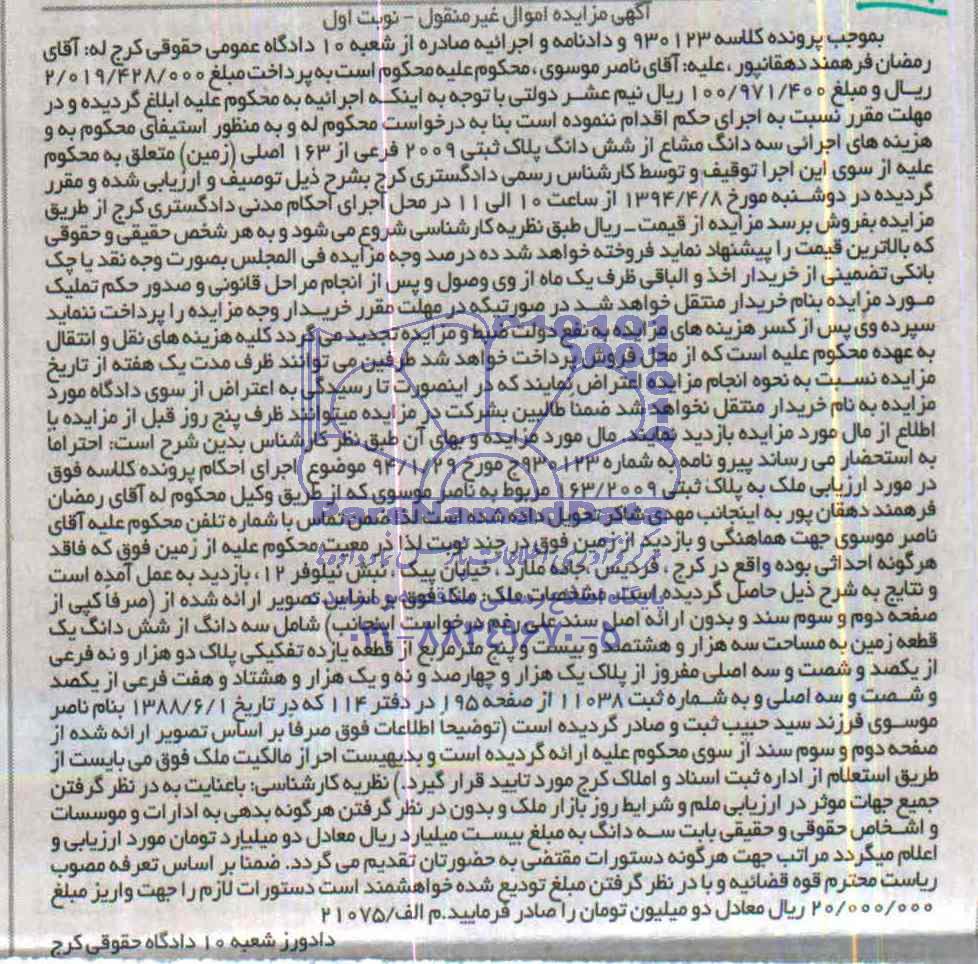 آگهی مزایده اموال غیرمنقول - نوبت اول
بموجب پرونده کلاسه ۹۳۰۱۲۳ و دادنامه و اجرائیه صادره از شعبه ۱۰ دادگاه عمومی حقوقی کرج له: آقای
رمضان فرهمند دهقانپور ، علیه: آقای ناصر موسوی ، محکوم علیه محکوم است به پرداخت مبلغ ۲/۰۱۹/۴۲۸/۰۰۰
ریـال و مبلغ ۱۰۰/۹۷۱/۴۰۰ ریال نیم عشـر دولتی با توجه به اینکـه اجرائیه به محکوم علیه ابلاغ گردیده و در
مهلت مقرر نسبت به اجرای حکم اقدام ننموده است بنا به درخواست محکوم له و به منظور استیفای محکوم به و
هزینه های اجرائی سه دانگ مشاع از شش دانگ پلاک ثبتی ۲۰۰۹ فرعی از ۱۶۳ اصلی (زمین) متعلق به محکوم
علیه از سوی این اجرا توقیف و توسط کارشناس رسمی دادگستری کرج بشرح ذیل توصیف و ارزیابی شده و مقرر
گردیده در دوشـنبه مورخ ۱۳۹۴/۴/۸ از ساعت ۱۰ الی ۱۱ در محل اجرای احکام مدنی دادگستری کرج از طریق
مزایده بفروش برسد مزایده از قیمت ـ ریال طبق نظریه کارشناسی شروع می شود و به هر شخص حقیقی و حقوقی
که بالاترین قیمت را پیشنهاد نماید فروخته خواهد شد ده درصد وجه مزایده فی المجلس بصورت وجه نقد یا چک
بانکی تضمینی از خریدار اخذ و الباقی ظرف یک ماه از وی وصول و پس از انجام مراحل قانونی و صدور حکم تملیک
مـورد مزایده بنام خریدار منتقل خواهد شـد در صورتیکه در مهلت مقرر خریـدار وجه مزایده را پرداخت ننماید
سپرده وی پس از کسر هزینه های مزایده به نفع دولت ضبط و مزایده تجدید می گردد کلیه هزینه های نقل و انتقال
به عهده محکوم علیه است که از محل فروش پرداخت خواهد شد طرفین می توانند ظرف مدت یک هفته از تاریخ
مزایده نسـبت به نحوه انجام مزایده اعتراض نمایند که در اینصورت تا رسیدگی به اعتراض از سوی دادگاه مورد
مزایده به نام خریدار منتقل نخواهد شد ضمنا طالبین بشرکت در مزایده میتوانند ظرف پنج روز قبل از مزایده با
اطلاع از مال مورد مزایده بازدید نمایند. مال مورد مزایده و بهای آن طبق نظر کارشناس بدین شرح است: احتراما
به استحضار می رساند پیرو نامه به شماره ۹۳۰۱۲۳ج مورخ ۹۴/۱/۲۹ موضوع اجرای احکام پرونده کلاسه فوق
در مورد ارزیابی ملک به پلاک ثبتی ۱۶۳/۲۰۰۹ مربوط به ناصر موسوی که از طریق وکیل محکوم له آقای رمضان
فرهمند دهقان پور به اینجانب مهدی شاکر تحویل داده شده است لذا ضمن تماس با شماره تلفن محکوم علیه آقای
ناصر موسوی جهت هماهنگی و بازدید از زمین فوق در چند نوبت لذا در معیت محکوم علیه از زمین فوق که فاقد
هرگونه احداثی بوده واقع در کرج ، فردیس، جاده ملارد ، خیابان پیک ، نبش نیلوفر ۱۲ ، بازدید به عمل آمده است
و نتایج به شرح ذیل حاصل گردیده است. مشخصات ملک: ملک فوق بر اساس تصویر ارائه شده از (صرفا کپی از
صفحه دوم و سوم سند و بدون ارائه اصل سند علی رغم درخواست اینجانب) شامل سه دانگ از شش دانگ یک
قطعه زمین به مساحت سه هزار و هشتصد و بیست و پنج مترمربع از قطعه یازده تفکیکی پلاک دو هزار و نه فرعی
از یکصد و شصت و سه اصلی مفروز از پلاک یک هزار و چهارصد و نه و یک هزار و هشتاد و هفت فرعی از یکصد
و شـصت و سه اصلی و به شماره ثبت ۱۱۰۳۸ از صفحه ۱۹۵ در دفتر ۱۱۴ که در تاریخ ۱۳۸۸/۶/۱ بنام ناصر
موسـوی فرزند سید حبیب ثبت و صادر گردیده است (توضیحا اطلاعات فوق صرفا بر اساس تصویر ارائه شده از
صفحه دوم و سوم سند از سوی محکوم علیه ارائه گردیده است و بدیهیست احراز مالکیت ملک فوق می بایست از
طریق استعلام از اداره ثبت اسناد و املاک کرج مورد تایید قرار گیرد.) نظریه کارشناسی: باعنایت به در نظر گرفتن
جمیع جهات موثر در ارزیابی ملم و شرایط روز بازار ملک و بدون در نظر گرفتن هرگونه بدهی به ادارات و موسسات
و اشخاص حقوقی و حقیقی بابت سـه دانگ به مبلغ بیسـت میلیارد ریال معادل دو میلیارد تومان مورد ارزیابی و
اعلام میگردد مراتب جهت هرگونه دستورات مقتضی به حضورتان تقدیم می گردد. ضمنا بر اساس تعرفه مصوب
ریاست محترم قوه قضائیه و با در نظر گرفتن مبلغ تودیع شده خواهشمند است دستورات لازم را جهت واریز مبلغ
۲۰/۰۰۰/۰۰۰ ریال معادل دو میلیون تومان را صادر فرمایید.م الف/۲۱۰۷۵
دادورز شعبه ۱۰ دادگاه حقوقی کرج
۰۲۱-۸۸۳۴۹۶۷۰-۵